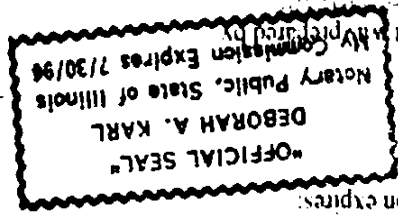 n expires:
"OFFICIAL SEAL"
DEBORAH A. KARL
Notary Public, State of Illinois
My Commission Expires 7/30/96
prepared by